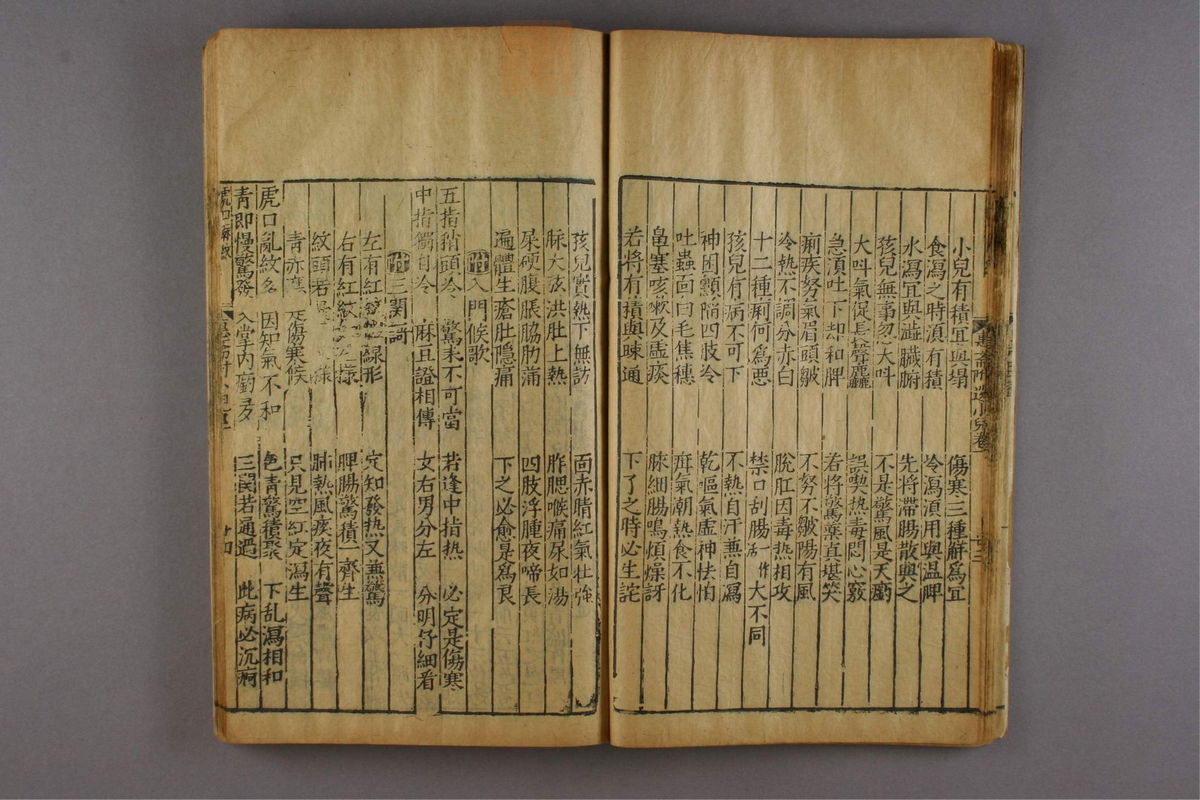 小兒有積宜與塌 傷寒三種解爲宜
食瀉之時湏有積 冷瀉湏用與温脾
水瀉宜與澁臟腑 先將滯腸散與之
孩兒無事忽大呌 不是驚風是天
大呌氣促長聲麤 誤喫熱毒悶心竅
急湏吐下却和脾 若將驚藥真堪笑
痢疾努氣眉頭皺 不努不皺腸有風
冷熱不調分赤白 脫肛因毒熱相攻
十二種痢何爲惡 禁口刮腸一作活大不同
孩兒有病不可下 不熱自汗兼自瀉
神困顖陷四肢冷 乾嘔氣虛神怯怕
吐蟲面白毛焦穗 疳氣潮熱食不化
鼻塞咳嗽及虛痰 脉細腸鳴煩燥訝
若將有積與踈通 下了之時必生詫
孩兒實熱下無訪 面赤睛紅氣壯強
脉大弦洪肚上熱 肨腮喉痛尿如湯
屎硬腹脹脇肋滿 四肢浮腫夜啼長
遍體生瘡肚隱痛 下之必愈是爲良
附 入門候歌
五指稍頭冷 驚來不可當 若逢中指熱 必定是傷寒
中指獨自冷 麻豆證相傳 女右男分左 分明仔細看
附 三関
左有紅 線形 定知發熱又兼驚
右有紅紋 樣 脾腸驚積一齊生
紋頭若 樣 肺熱風痰夜有聲
青亦 是傷寒候 只見空紅定瀉生
虎口亂紋多 因知氣不和 色青驚積聚 下乱瀉相和
青即慢驚發 入掌內 三関若通過 此病必沉痾
虎口
十四